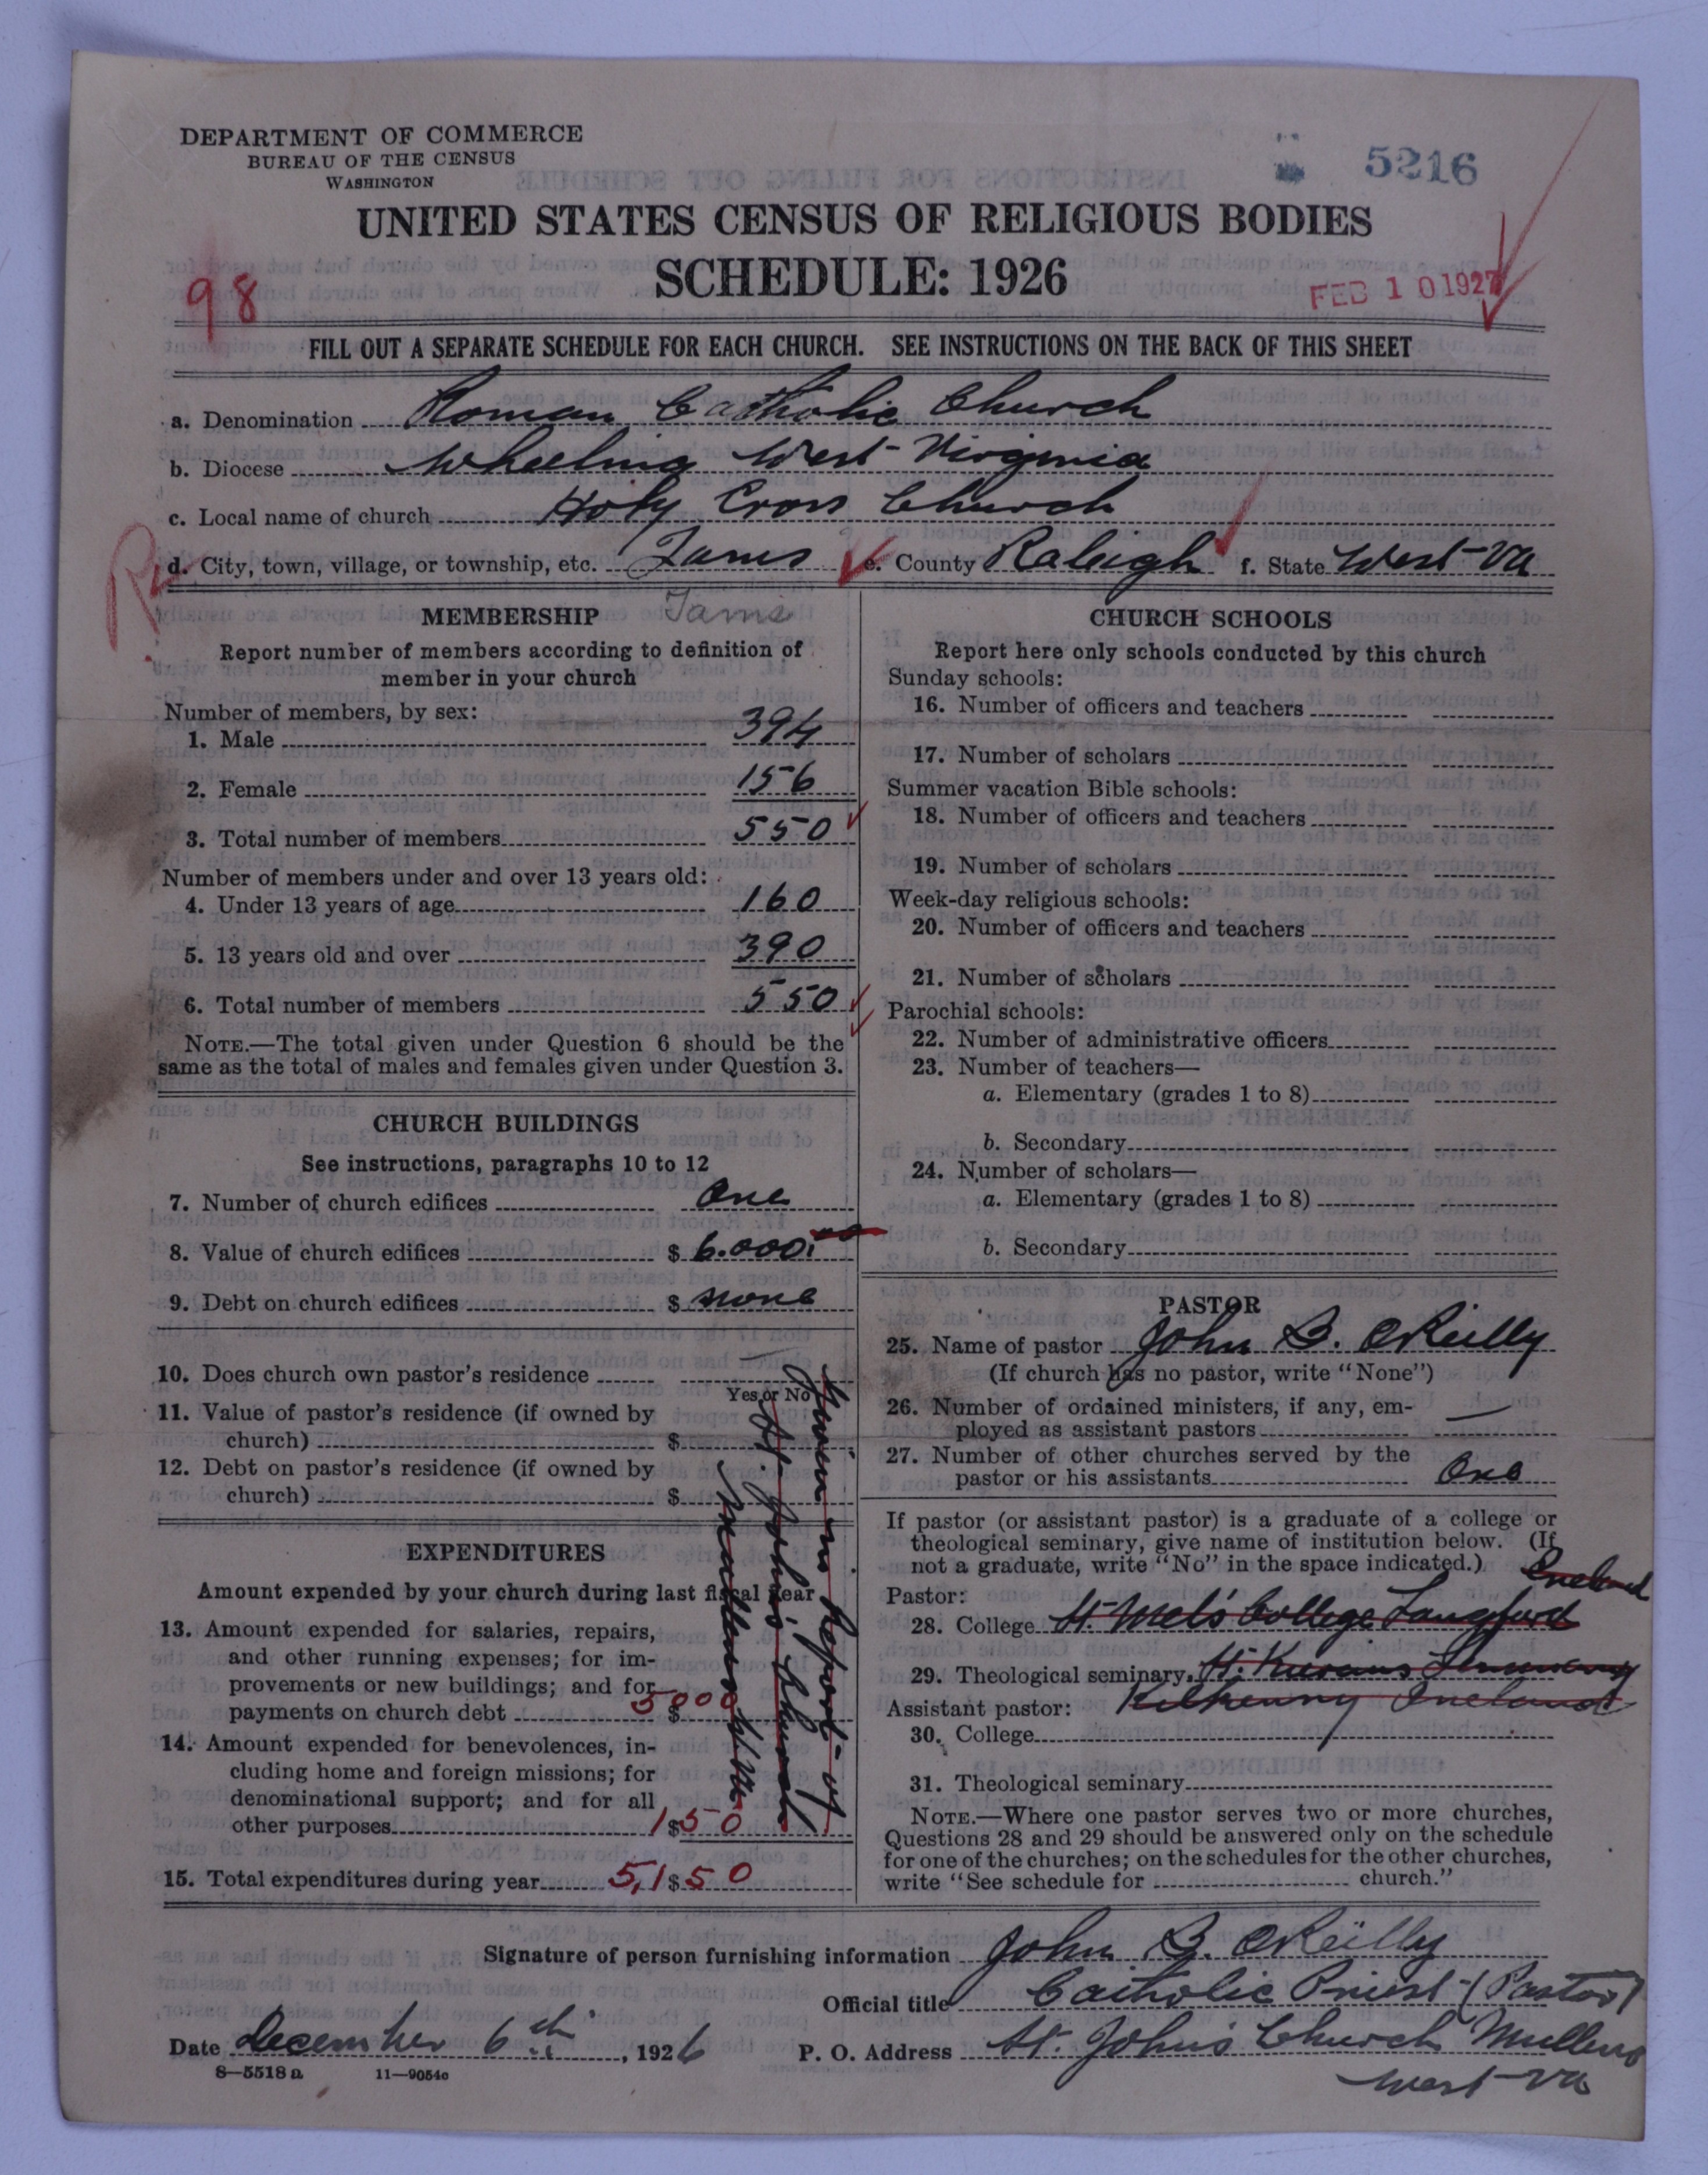 DEPARTMENT OF COMMERCE
BUREAU OF THE CENSUS
WASHINGTON
5216
UNITED STATES CENSUS OF RELIGIOUS BODIES
SCHEDULE: 1926
98
FEB 10 1927
FILL OUT A SEPARATE SCHEDULE FOR EACH CHURCH. SEE INSTRUCTIONS ON THE BACK OF THIS SHEET
a. Denomination Roman Catholic Church
b. Diocese Wheeling West Virginia
c. Local name of church Holy Cross Church
R
d. City, town, village, or township, etc. Tams e. County Raleigh f. State West Va
MEMBERSHIP
Report number of members according to definition of
member in your church
Number of members, by sex:
1. Male 394
2. Female 156
3. Total number of members 550
Number of members under and over 13 years old:
4. Under 13 years of age 160
5. 13 years old and over 390
6. Total number of members 550
NOTE.—The total given under Question 6 should be the
same as the total of males and females given under Question 3.
CHURCH BUILDINGS
See instructions, paragraphs 10 to 12
7. Number of church edifices One
8. Value of church edifices $ 6.000
9. Debt on church edifices $ none
10. Does church own pastor's residence
Yes or No
11. Value of pastor's residence (if owned by
church) $
12. Debt on pastor's residence (if owned by
church) $
Given in Report of
St. John's Church
Mullens W. Va
EXPENDITURES
Amount expended by your church during last fiscal year
13. Amount expended for salaries, repairs,
and other running expenses; for im-
provements or new buildings; and for
payments on church debt $ 5000
14. Amount expended for benevolences, in-
cluding home and foreign missions; for
denominational support; and for all
other purposes $ 150
15. Total expenditures during year $ 5,150
CHURCH SCHOOLS
Report here only schools conducted by this church
Sunday schools:
16. Number of officers and teachers
17. Number of scholars
Summer vacation Bible schools:
18. Number of officers and teachers
19. Number of scholars
Week-day religious schools:
20. Number of officers and teachers
21. Number of scholars
Parochial schools:
22. Number of administrative officers
23. Number of teachers—
a. Elementary (grades 1 to 8)
b. Secondary
24. Number of scholars—
a. Elementary (grades 1 to 8)
b. Secondary
PASTOR
25. Name of pastor John B. O'Reilly
(If church has no pastor, write "None")
26. Number of ordained ministers, if any, em-
ployed as assistant pastors —
27. Number of other churches served by the
pastor or his assistants One
If pastor (or assistant pastor) is a graduate of a college or
theological seminary, give name of institution below. (If
not a graduate, write "No" in the space indicated.)
Ireland
Pastor:
28. College St. Mel's College Longford
29. Theological seminary St. Kierans Seminary
Kilkenny Ireland
Assistant pastor:
30. College
31. Theological seminary
NOTE.—Where one pastor serves two or more churches,
Questions 28 and 29 should be answered only on the schedule
for one of the churches; on the schedules for the other churches,
write "See schedule for church."
Signature of person furnishing information John B. O'Reilly
Official title Catholic Priest (Pastor)
Date December 6th, 1926
P. O. Address St. John's Church Mullens
West Va
8—5518 a 11—9054c